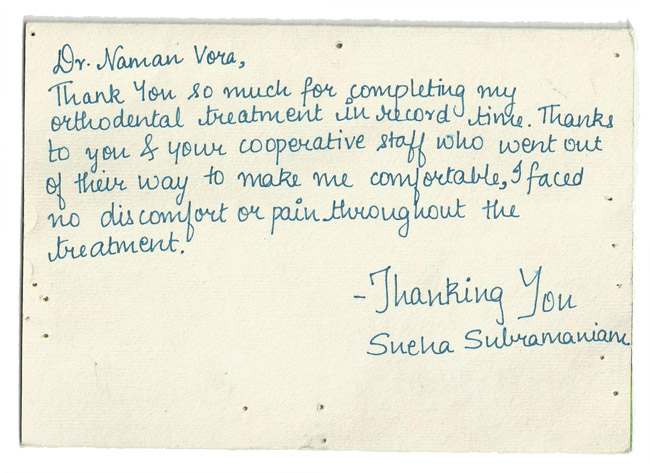 Dr. Naman Vora,
Thank You so much for completing my
orthodental treatment in record time. Thanks
to you & your cooperative staff who went out
of their way to make me comfortable, I faced
no discomfort or pain throughout the
treatment.
- Thanking You
Sneha Subramaniam